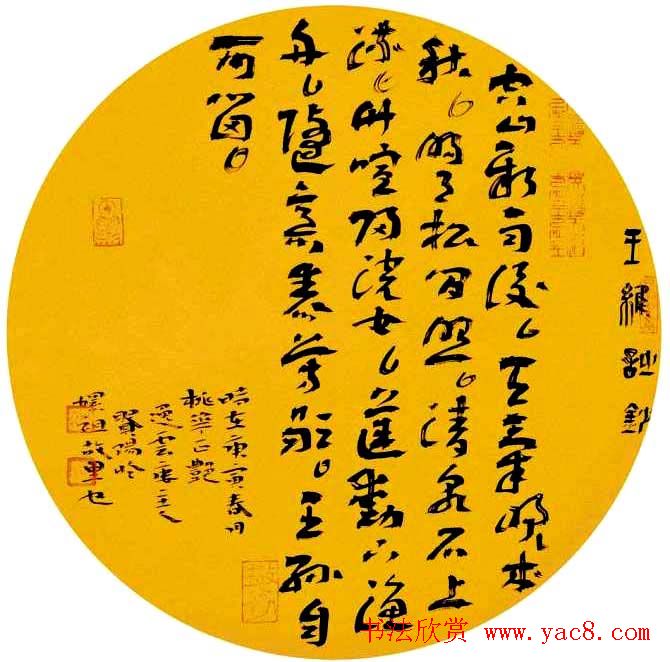 王維詩鈔
空山新雨後天氣晚来
秋明月松間照清泉石上
流竹喧歸浣女蓮動下漁
舟隨意春芳歇王孫自
可留
時在庚寅春月
桃華正艷
雲主人
陽於
嫘祖故里也
书法欣赏 www.yac8.com